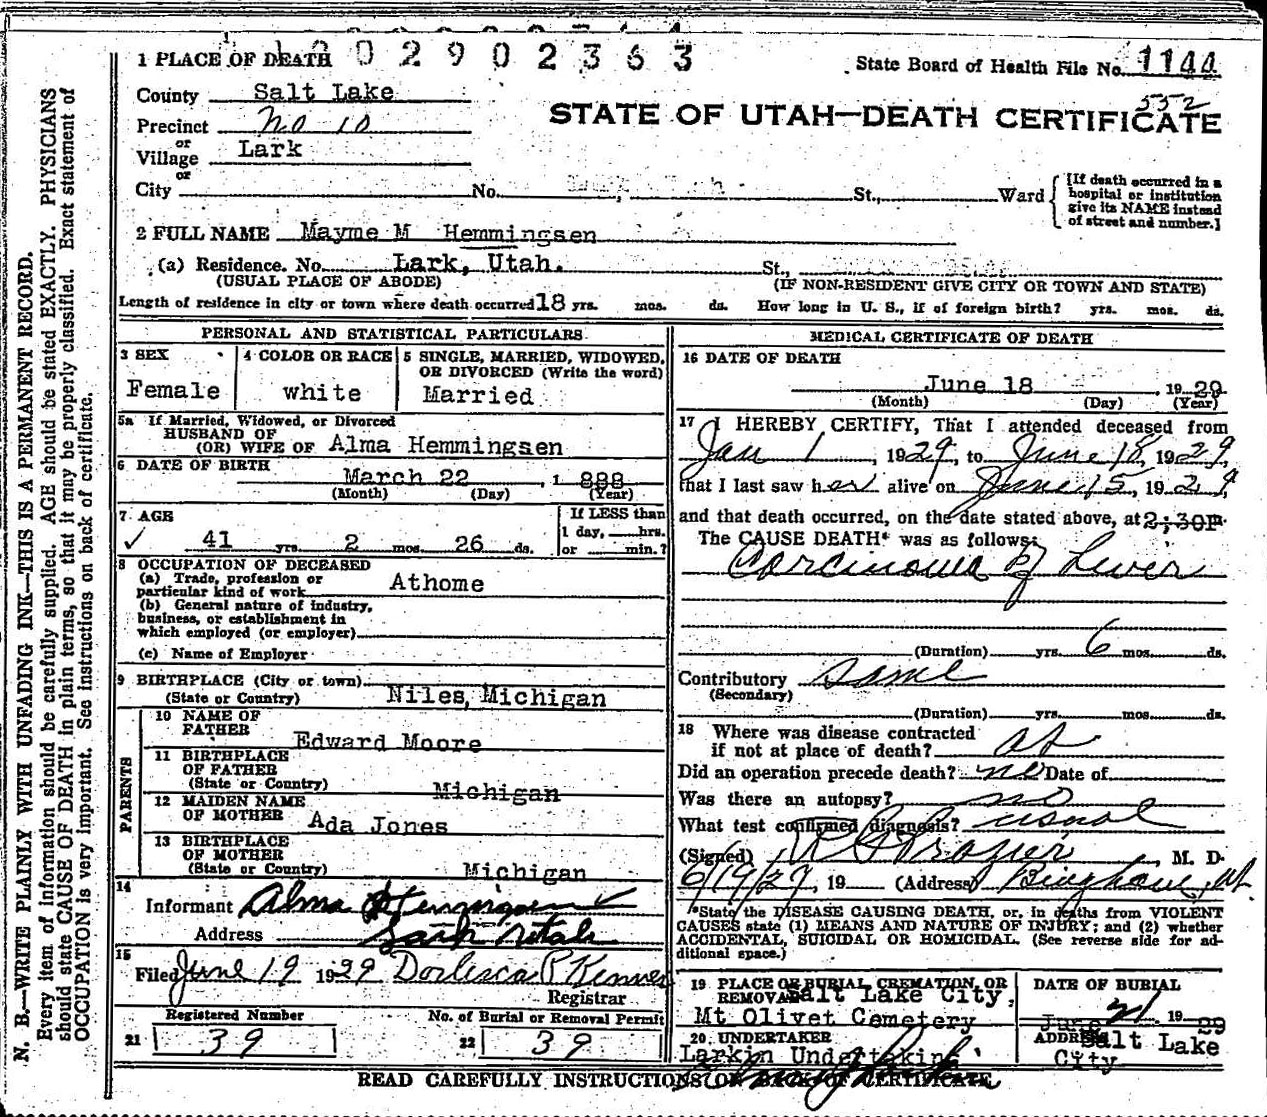 N. B.—WRITE PLAINLY WITH UNFADING INK—THIS IS A PERMANENT RECORD.
Every item of information should be carefully supplied. AGE should be stated EXACTLY. PHYSICIANS
should state CAUSE OF DEATH in plain terms, so that it may be properly classified. Exact statement of
OCCUPATION is very important. See instructions on back of certificate.
1 PLACE OF DEATH 02902363 State Board of Health File No. 1144
County Salt Lake 552
STATE OF UTAH—DEATH CERTIFICATE
Precinct No 10
or
Village Lark
or
City No. St., Ward
[If death occurred in a
hospital or institution
give its NAME instead
of street and number.]
2 FULL NAME Mayme M Hemmingsen
(a) Residence. No. Lark, Utah. St.,
(USUAL PLACE OF ABODE) (IF NON-RESIDENT GIVE CITY OR TOWN AND STATE)
Length of residence in city or town where death occurred 18 yrs. mos. ds. How long in U. S., if of foreign birth? yrs. mos. ds.
PERSONAL AND STATISTICAL PARTICULARS
3 SEX
Female
4 COLOR OR RACE
white
5 SINGLE, MARRIED, WIDOWED,
OR DIVORCED (Write the word)
Married
5a If Married, Widowed, or Divorced
HUSBAND OF
(OR) WIFE OF Alma Hemmingsen
6 DATE OF BIRTH
March 22, 1 888
(Month) (Day) (Year)
7 AGE
✓ 41 yrs. 2 mos. 26 ds.
If LESS than
1 day, hrs.
or min.?
8 OCCUPATION OF DECEASED
(a) Trade, profession or
particular kind of work Athome
(b) General nature of industry,
business, or establishment in
which employed (or employer)
(c) Name of Employer
9 BIRTHPLACE (City or town)
(State or Country) Niles, Michigan
PARENTS
10 NAME OF
FATHER Edward Moore
11 BIRTHPLACE
OF FATHER
(State or Country) Michigan
12 MAIDEN NAME
OF MOTHER Ada Jones
13 BIRTHPLACE
OF MOTHER
(State or Country) Michigan
14
Informant Alma Hemmingsen ✓
Address Lark Utah
15
Filed June 19 1929 P Kenner
Registrar
Registered Number No. of Burial or Removal Permit
21 39 22 39
MEDICAL CERTIFICATE OF DEATH
16 DATE OF DEATH
June 18, 1929
(Month) (Day) (Year)
17 I HEREBY CERTIFY, That I attended deceased from
Jan 1, 1929, to June 18, 1929,
that I last saw her alive on June 15, 1929,
and that death occurred, on the date stated above, at 2;30P.
The CAUSE DEATH* was as follows:
Carcinoma of Liver
(Duration) yrs. 6 mos. ds.
Contributory same
(Secondary)
(Duration) yrs. mos. ds.
18 Where was disease contracted
if not at place of death? at
Did an operation precede death? no Date of
Was there an autopsy? no
What test confirmed diagnosis? usual
(Signed) Frazier, M. D.
6/19/29, 19 (Address) Bingham, Ut
*State the DISEASE CAUSING DEATH, or, in deaths from VIOLENT
CAUSES state (1) MEANS AND NATURE OF INJURY; and (2) whether
ACCIDENTAL, SUICIDAL OR HOMICIDAL. (See reverse side for ad-
ditional space.)
19 PLACE OF BURIAL, CREMATION, OR
REMOVAL Salt Lake City,
Mt Olivet Cemetery
DATE OF BURIAL
June 21, 1929
20 UNDERTAKER
Larkin Undertaking
ADDRESS Salt Lake
City
READ CAREFULLY INSTRUCTIONS ON BACK OF CERTIFICATE